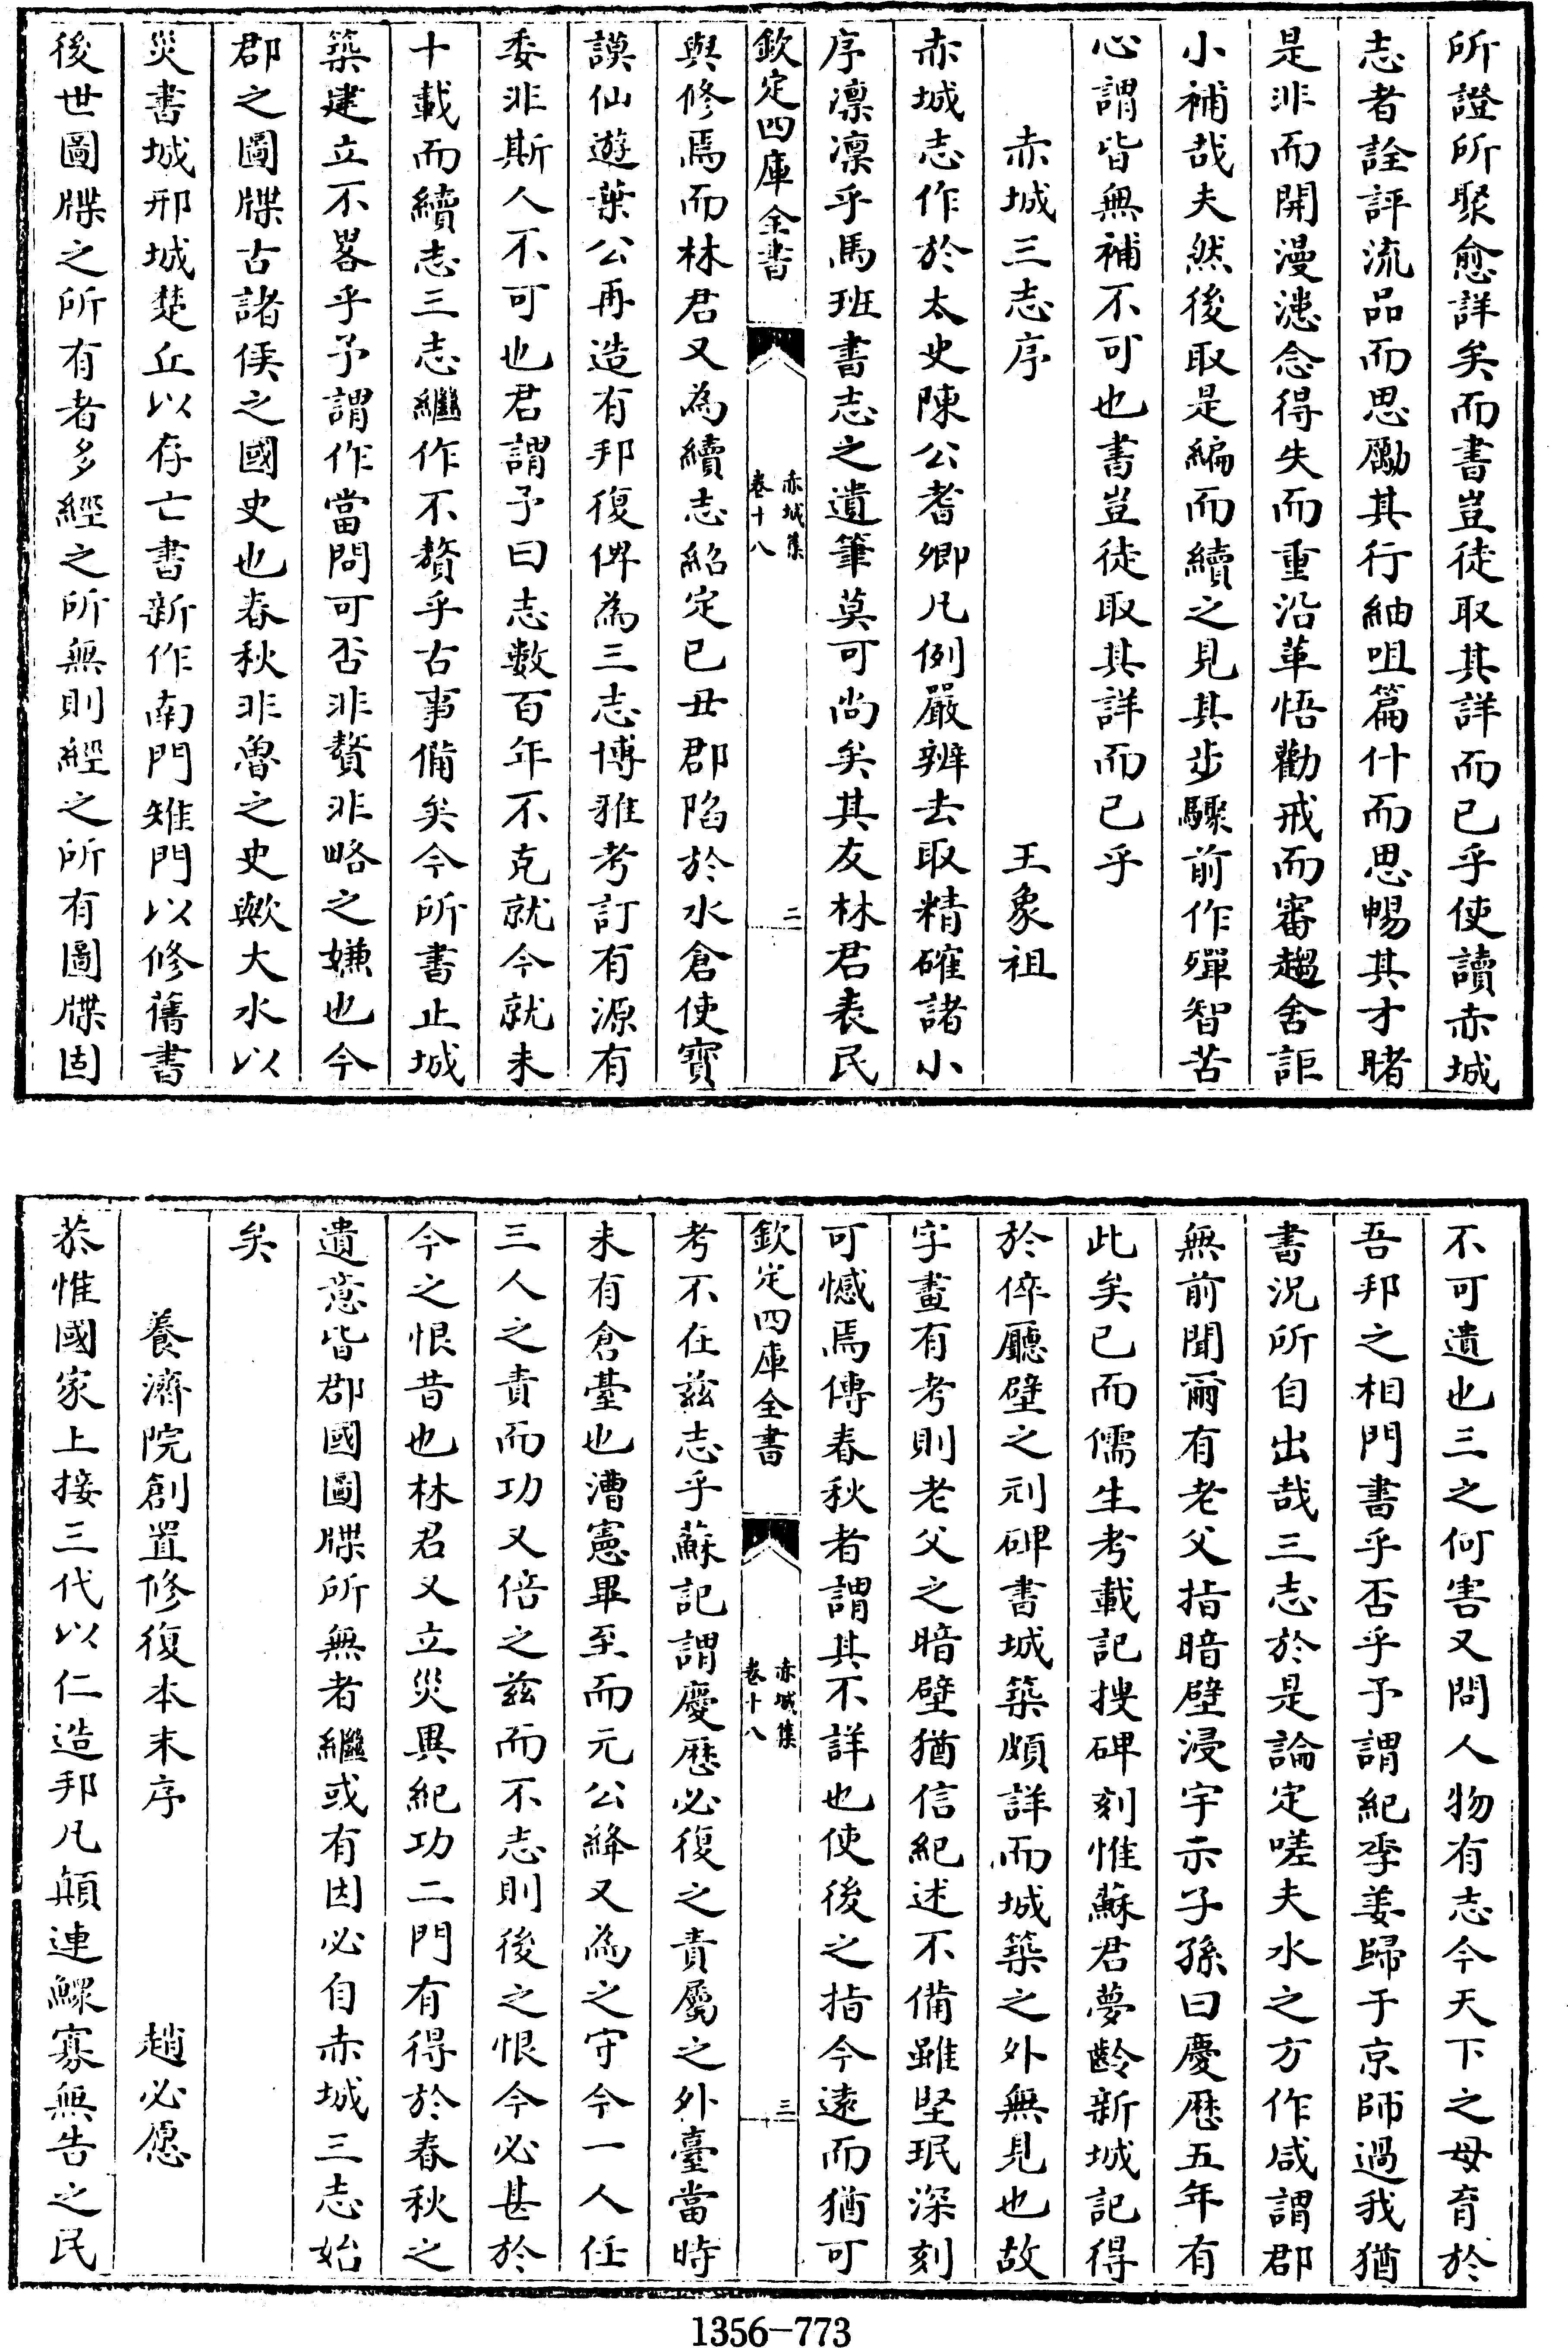 所證所聚愈詳矣而書豈徒取其詳而已乎使讀赤城
志者詮評流品而思勵其行紬咀篇什而思暢其才睹
是非而開漫漶念得失而重沿革悟勸戒而審趨舍詎
小補哉夫然後取是編而續之見其步驟前作殫智苦
心謂皆無補不可也書豈徒取其詳而已乎
赤城三志序 王象祖
赤城志作於太史陳公耆卿凡例嚴辨去取精確諸小
序凛凛乎馬班書志之遺筆莫可尚矣其友林君表民
欽定四庫全書 赤城集 卷十八 二
與修焉而林君又為續志紹定已丑郡陷於水倉使寶
謨仙遊葉公再造有邦復俾為三志博雅考訂有源有
委非斯人不可也君謂予曰志數百年不克就今就未
十載而續志三志繼作不贅乎古事備矣今所書止城
築建立不畧乎予謂作當問可否非贅非略之嫌也今
郡之圖牒古諸侯之國史也春秋非魯之史歟大水以
災書城邢城楚丘以存亡書新作南門雉門以修舊書
後世圖牒之所有者多經之所無則經之所有圖牒固
不可遺也三之何害又問人物有志今天下之母育於
吾邦之相門書乎否乎予謂紀季姜歸于京師過我猶
書況所自出哉三志於是論定嗟夫水之方作咸謂郡
無前聞爾有老父指暗壁浸宇示子孫曰慶厯五年有
此矣已而儒生考載記搜碑刻惟蘇君夢齡新城記得
於倅廳壁之刓碑書城築頗詳而城築之外無見也故
字畫有考則老父之暗壁猶信紀述不備雖堅珉深刻
可憾焉傳春秋者謂其不詳也使後之指今遠而猶可
欽定四庫全書 赤城集 卷十八 三
考不在兹志乎蘇記謂慶厯必復之責屬之外臺當時
未有倉臺也漕憲畢至而元公絳又為之守今一人任
三人之責而功又倍之兹而不志則後之恨今必甚於
今之恨昔也林君又立災異紀功二門有得於春秋之
遺意皆郡國圖牒所無者繼或有因必自赤城三志始
矣
養濟院創置修復本末序 趙必愿
恭惟國家上接三代以仁造邦凡顛連鰥寡無告之民
1356-773